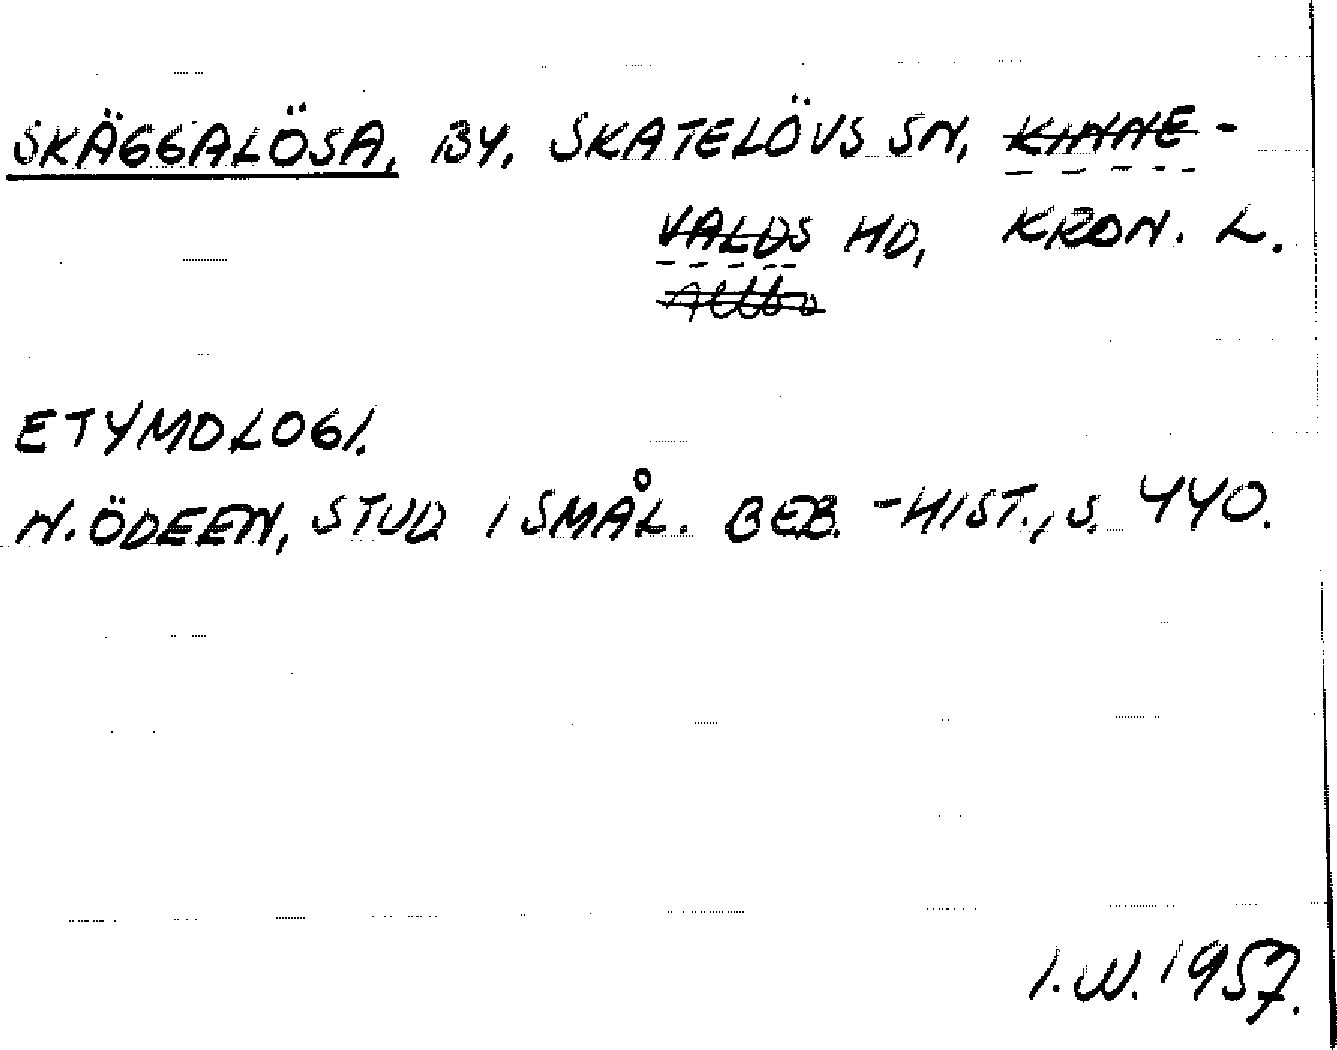 SKÄGGALÖSA, BY, SKATELÖVS SN, KINNE-
VALDS HD, KRON. L.
Allbo
ETYMOLOGI.
N. ÖDEEN, STUD I SMÅL. BEB. -HIST., S. 440.
I.W. 1957.